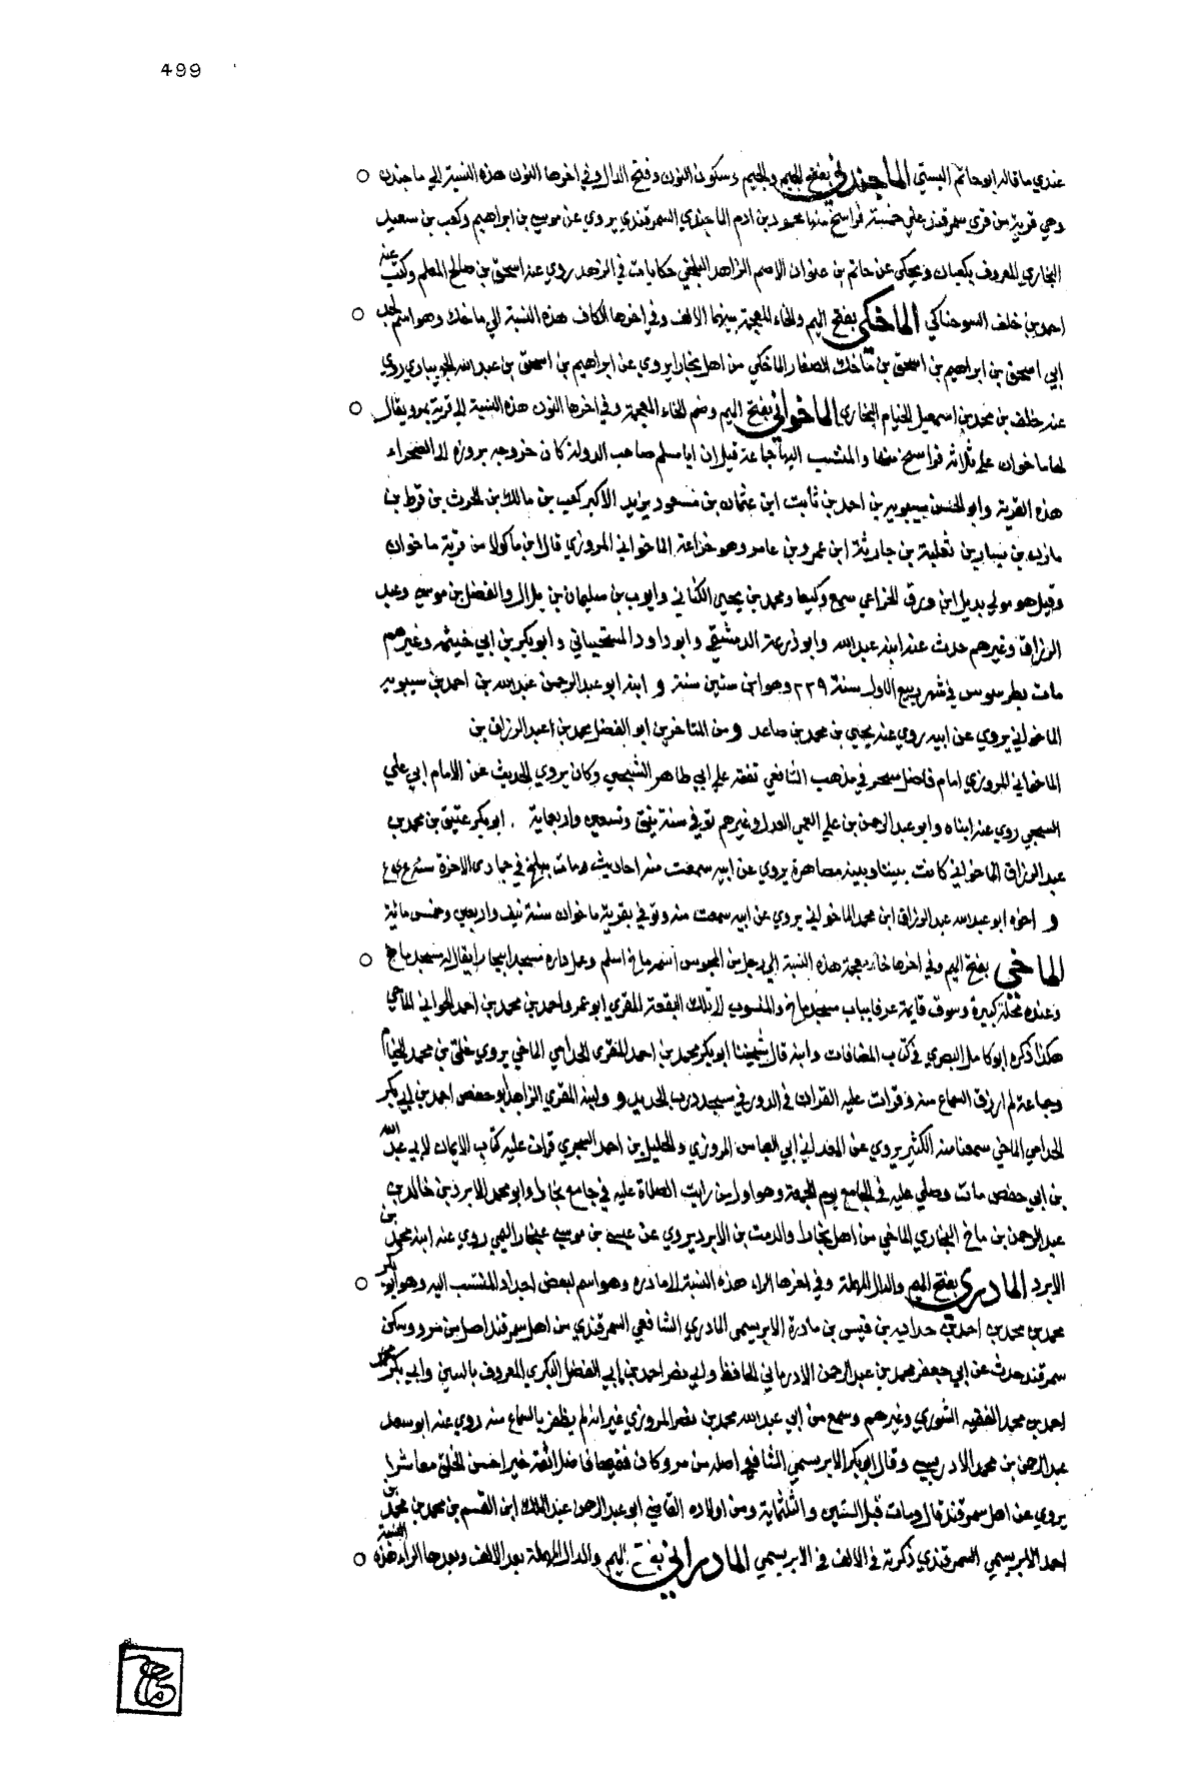 499
عندي ما قاله ابو حاتم البستي الماجندني بفتح الميم والجيم وسكون النون وفتح الدال وفي اخرها النون هذه النسبة الي ماجندن
وهي قرية من قري سمرقند علي خمسة فراسخ منها محمود بن ادم الماجندي السمرقندي يروي عن موسي بن ابراهيم وكعب بن سعيد
البخاري المعروف بكعبان ويحكي عن حاتم بن عنوان الاصم الزاهد البلخي حكايات في الزهد روي عنه اسحق بن صالح المعلم وكتب عنه
احمد بن خلف السوحناكي الماخكي بفتح الميم والخاء المعجمة بينهما الالف وفي اخرها الكاف هذه النسبة الي ماخك وهو اسم لجد
ابي اسحق بن ابراهيم بن اسحق بن ماخك الصفار الماخكي من اهل بخارا يروي عن ابراهيم بن اسحق بن عبد الله الجويباري روي
عنه خلف بن محمد بن اسمعيل الخيام البخاري الماخواني بفتح الميم وضم الخاء المعجمة وفي اخرها النون هذه النسبة الي قرية بمرو يقال
لها ماخوان علي ثلاثة فراسخ منها والمنتسب اليها جماعة قيل ان ابا مسلم صاحب الدولة كان خروجه بروزه الا الصحراء
هذه القرية وابو الحسن سيبويه بن احمد بن ثابت ابن عثمان بن مسعود يزيد الاكبر كعب بن مالك بن الحرث بن قرط بن
مازن بن سيار بن ثعلبة بن حارثة ابن عمرو بن عامر وهو خزاعة الماخواني المروزي قال ابن ماكولا من قرية ماخوان
وقيل هو مولي بديل ابن ورق الخزاعي سمع وكيعا ومحمد بن يحيي الكناني وايوب بن سليمان بن بلال والفضل بن موسي وعبد
الرزاق وغيرهم حدث عنه ابنه عبد الله وابو زرعة الدمشقي وابو داود السختياني وابو بكر بن ابي خيثمه وغيرهم
مات بطرسوس في شهر ربيع الاول سنة ٢٢٩ وهو ابن ستين سنة و ابنه ابو عبد الرحمن عبد الله بن احمد بن سيبويه
الماخواني يروي عن ابيه روي عنه يحيي بن محمد بن صاعد ومن المتاخرين ابو الفضل محمد بن عبد الرزاق بن
الماخواني المروزي امام فاضل متبحر في مذهب الشافعي تفقه علي ابي طاهر السنجي وكان يروي الحديث عن الامام ابي علي
السنجي روي عنه ابناه وابو عبد الرحمن بن علي العمي العدل وغيرهم توفي سنة نيف وتسعين واربعماية . ابو بكر عتيق بن محمد بن
عبد الرزاق الماخواني كانت بيننا وبينه مصاهرة يروي عن ابيه سمعت منه احاديث ومات ببلخ في جمادي الاخرة سنة
و اخوه ابو عبد الله عبد الرزاق ابن محمد الماخواني يروي عن ابيه سمعت منه وتوفي بقرية ماخوان سنة نيف واربعين وخمس مائية
الماخي بفتح الميم وفي اخرها خاء معجمة هذه النسبة الي رجل من المجوس اسمه ماخ اسلم وعمل داره مسجدا ببخارا يقال له مسجد ماخ
وعنده محلة كبيرة وسوق قايمة عرف بباب مسجد ماخ والمنسوب الا تلك البقعة المقري ابو عمرو احمد بن محمد بن احمد الحواني الماخي
هكذا ذكره ابو كامل البصري في كتاب المضافات وابنه قال شيخنا ابو بكر محمد بن احمد المقري الحدامي الماخي يروي خلق بن محمد الخيام
وجماعة لم ارزق السماع منه وقرات عليه القران في الدور في مسجد درب الحديد و وابنه المقري الزاهد ابو حفص احمد بن ابي بكر
الحدامي الماخي سمعنا منه الكثير يروي عن المعداني ابي العباس المروزي والخليل بن احمد السجزي قرات عليه كتاب الايمان لابي عبد الله
بن ابي حفص مات وصلي عليه في الجامع يوم الجمعة وهو اول من رايت الصلاة عليه في جامع بخارا وابو محمد الابرد بن خالد بن
عبد الرحمن بن ماخ البخاري الماخي من اهل بخارا والدمت بن الابرد يروي عن عيسي بن موسي غنجار التيمي روي عنه ابنه محمد بن
الابرد المادري بفتح الميم والدال المهملة وفي اخرها الراء هذه النسبة الا مادره وهو اسم لبعض اجداد المنتسب اليه وهو ابو بكر
محمد بن محمد بن احمد بن حداديه بن قيس بن مادرة الابريسمي المادري الشافعي السمرقندي من اهل سمرقند اصله من مرو وسكن
سمرقند حدث عن ابي جعفر محمد بن عبد الرحمن الادرماني الحافظ وابي نصر احمد بن ابي الفضل البكري المعروف بالسين وابي بكر محمد
احمد بن محمد الفقيه الشوري وغيرهم وسمع من ابي عبد الله محمد بن نصر المروزي غير انه لم يظفر بالسماع منه روي عنه ابو سعد
عبد الرحمن بن محمد الادريسي وقال ابو بكر الابريسمي الشافعي اصله من مرو وكان فقيها فاضلا ثقة خيرا حسن الخلق معاشرا
يروي عن اهل سمرقند قال ومات قبل الستين والثلثماية ومن اولاده القاضي ابو عبد الرحمن عبد الملك ابن القسم بن محمد بن محمد بن
احمد الابريسمي السمرقندي ذكرته في الالف في الابريسمي المادرائي بفتح الميم والدال المهملة بعد الالف وبعدها الراء هذه النسبة